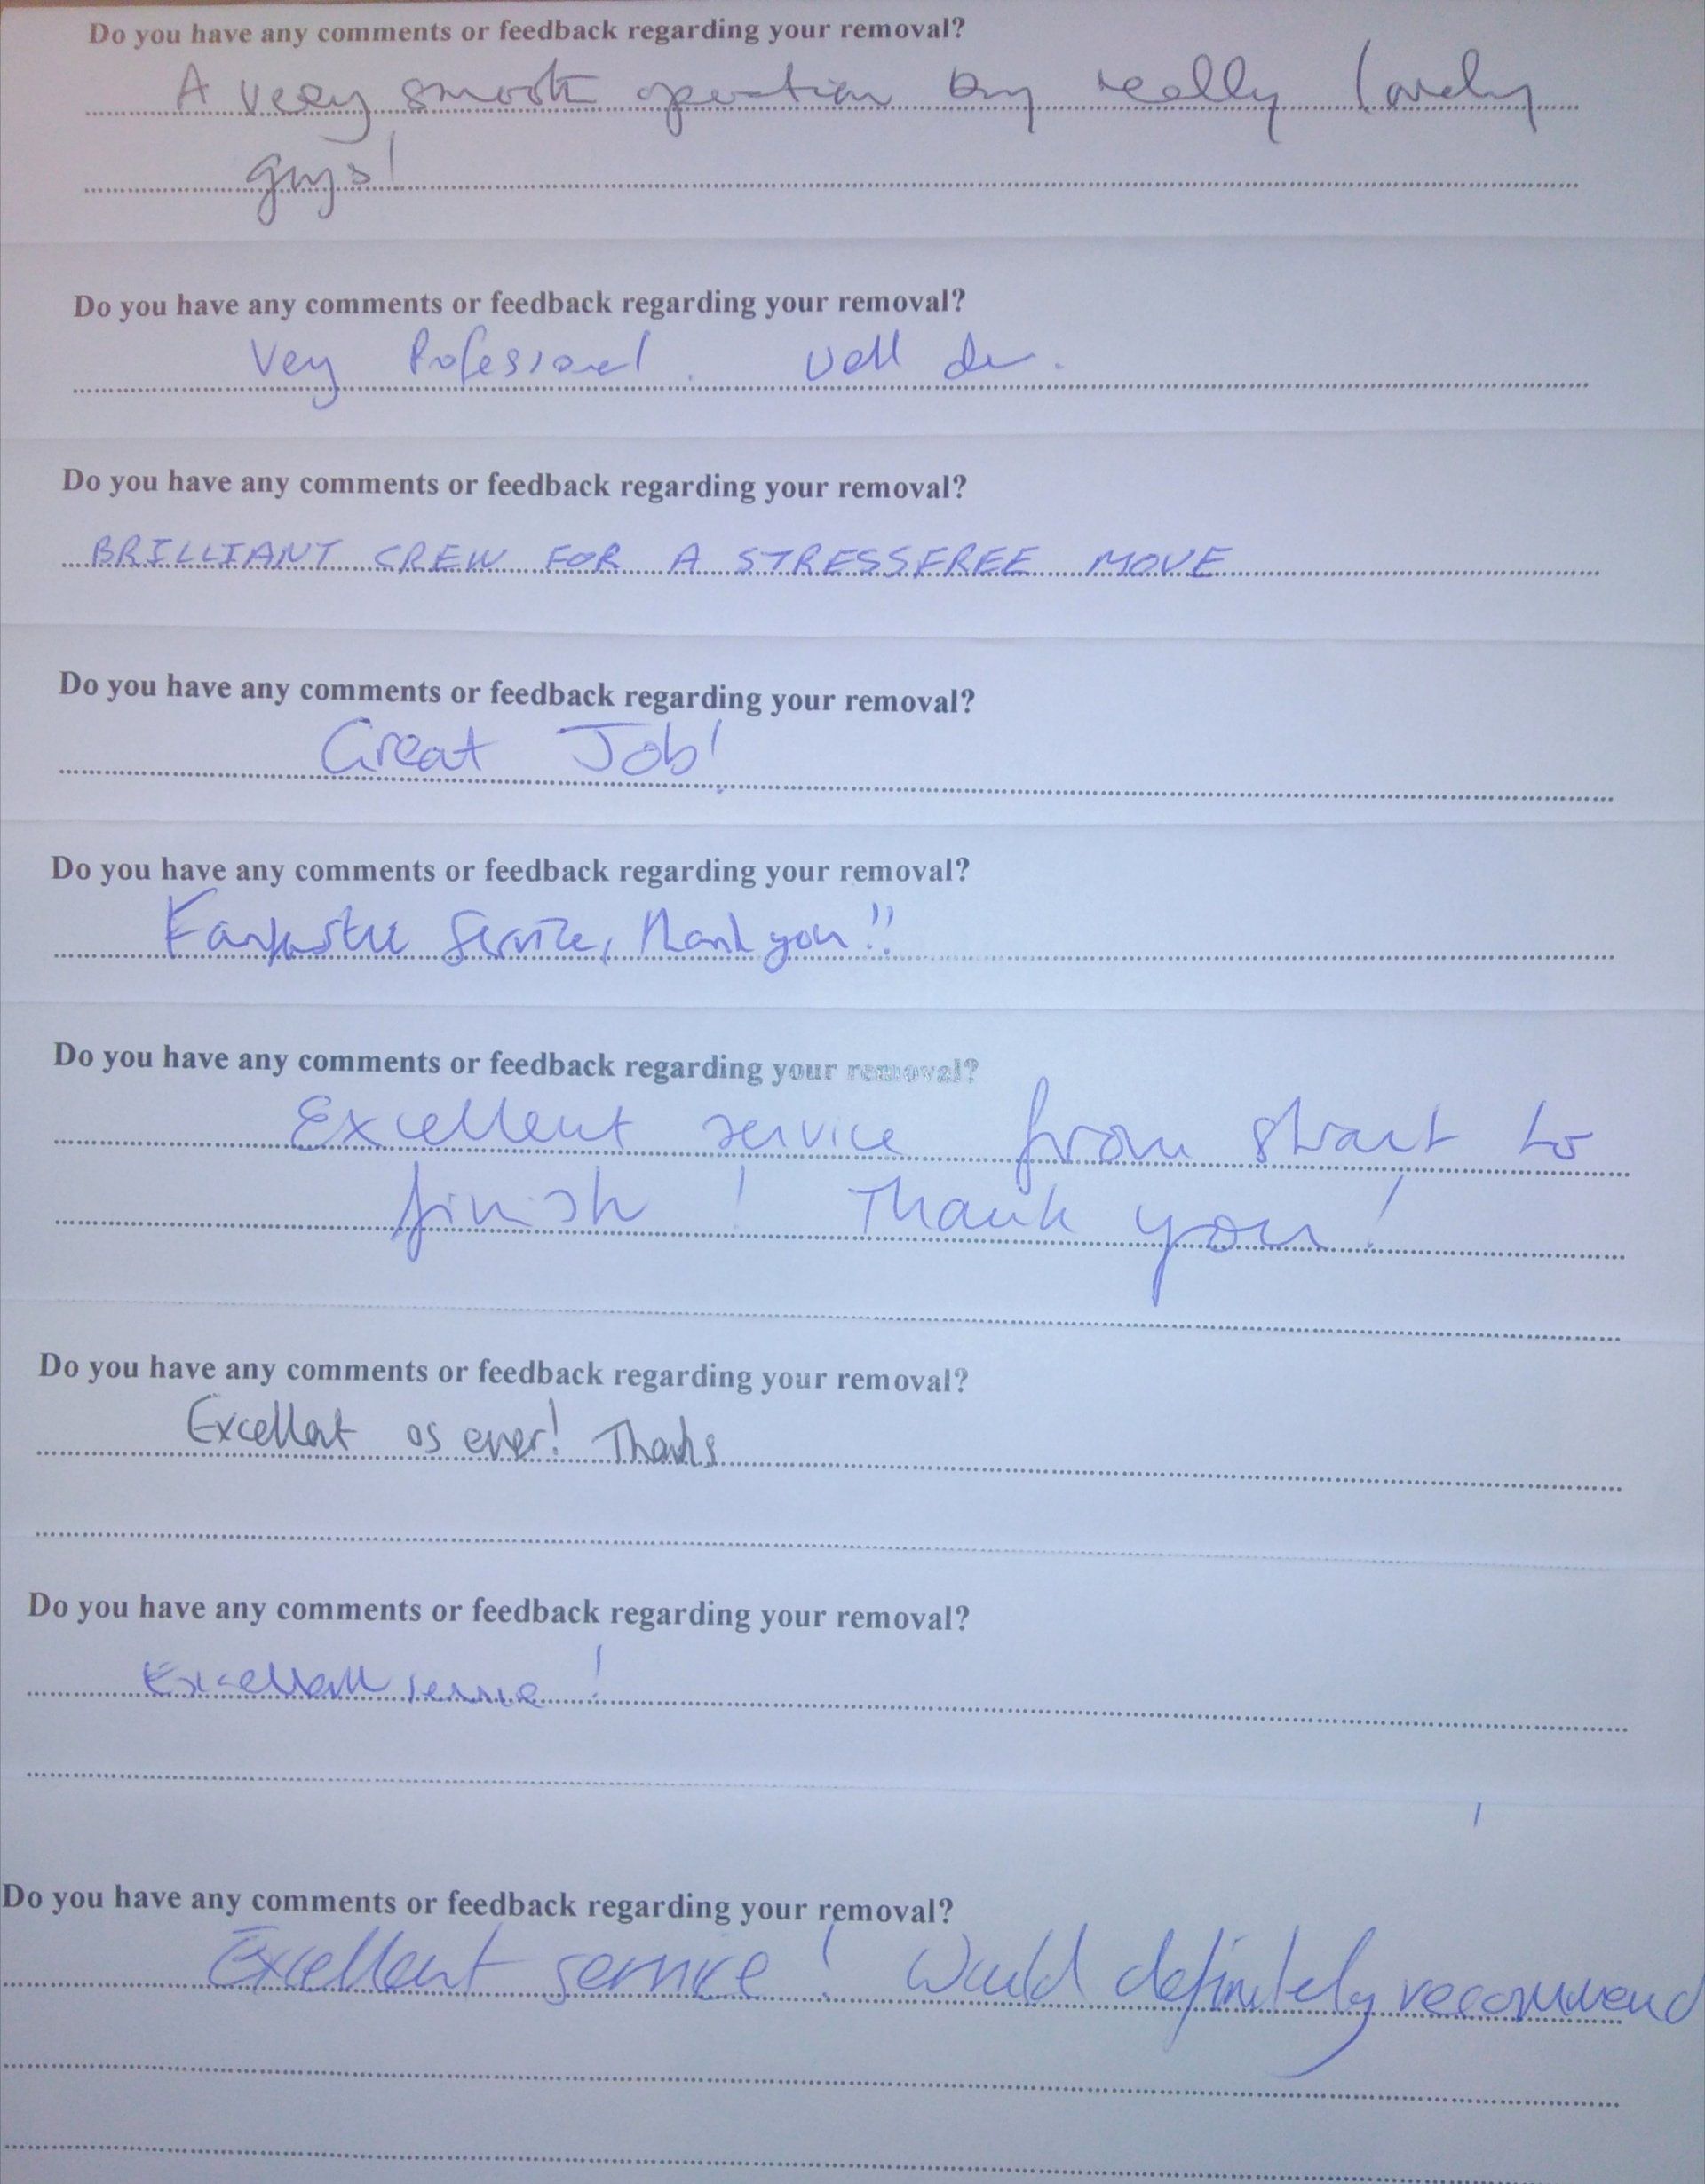 Do you have any comments or feedback regarding your removal?
A very smooth operation by really lovely
guys!
Do you have any comments or feedback regarding your removal?
Very Professional. Well done.
Do you have any comments or feedback regarding your removal?
BRILLIANT CREW FOR A STRESSFREE MOVE
Do you have any comments or feedback regarding your removal?
Great Job!
Do you have any comments or feedback regarding your removal?
Fantastic Service, thank you!!
Do you have any comments or feedback regarding your removal?
Excellent service from start to
finish! Thank you!
Do you have any comments or feedback regarding your removal?
Excellent as ever! Thanks
Do you have any comments or feedback regarding your removal?
Excellent service!
Do you have any comments or feedback regarding your removal?
Excellent service! Would definitely recommend